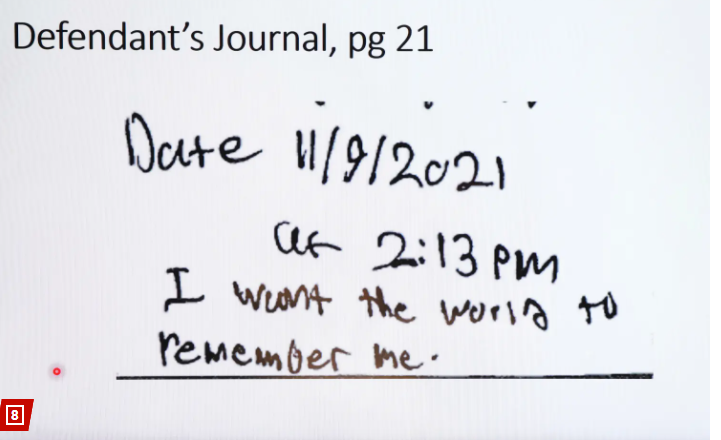 Defendant's Journal, pg 21
Date 11/9/2021
at 2:13 pm
I want the world to
remember me.
8